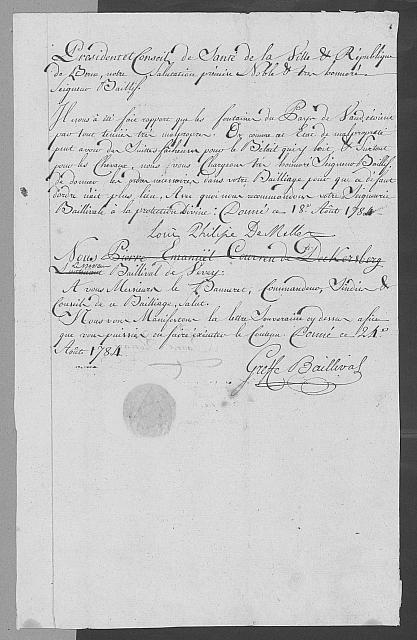 President et Conseil de Santé de la Ville & République
de Berne, notre Salutation première Noble & tres honnoré
Seigneur Baillif.
Il nous a été fait rapport que les fontaines du Pays de Vaud étoient
par tout tenües tres malpropres; Or comme cet Etat de malpropreté
peut avoir des Suites facheuses pour le Bétail qui y boit, & Surtout
pour les Chevaux, nous vous Chargeons tres honnoré Seigneur Baillif,
de donner les ordres nécessaires dans votre Bailliage pour que ce défaut
d'ordre n'ait plus lieu, Avec quoi nous recommandons votre Seigneurie
Baillivale à la protection Divine; Donné ce 18e Août 1784.
Louis Philipe De Mellet
Nous Pierre Emanuël Couvreu de Deckersberg
Lieutenant Baillival de Vevey.
A vous Messieurs le Banneret, Commandeur, Sindics &
Conseils de ce Bailliage, Salut.
Nous vous Manifestons la lettre Souveraine cy dessus afin
que vous puissiés en faire exécuter le Contenu Donné ce 24e
Août 1784.
Greffe Baillival